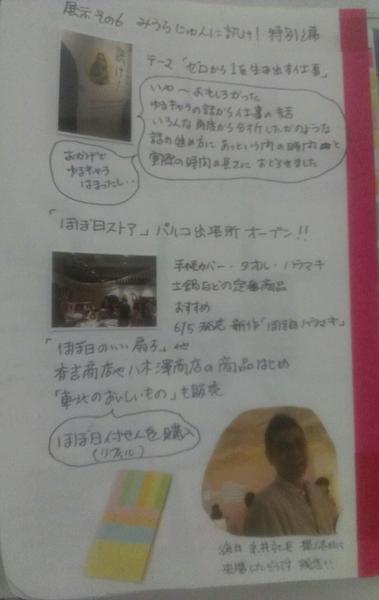 展示その6 みうらじゅんに訊け! 特別編
訊け!
テーマ「ゼロから1を生み出す仕事」
いや〜おもしろかった
ゆるキャラの話から仕事の話
いろんな角度から分析したかのような
話の進め方に あっという間の時間と
実際の時間の長さに おどろきました
おかげで
ゆるキャラ
はまったし..
「ほぼ日ストア」パルコ出張所 オープン!!
手帳カバー・タオル・ハラマキ
土鍋などの定番商品
おすすめ
6/5発売 新作「ほぼ日ハラマキ」
「ほぼ日のいい扇子」他
斉吉商店や八木澤商店の商品はじめ
「東北のおいしいもの」も販売
ほぼ日付せんを購入
(リフィル)
糸井社長
来場したそうです 残念!!